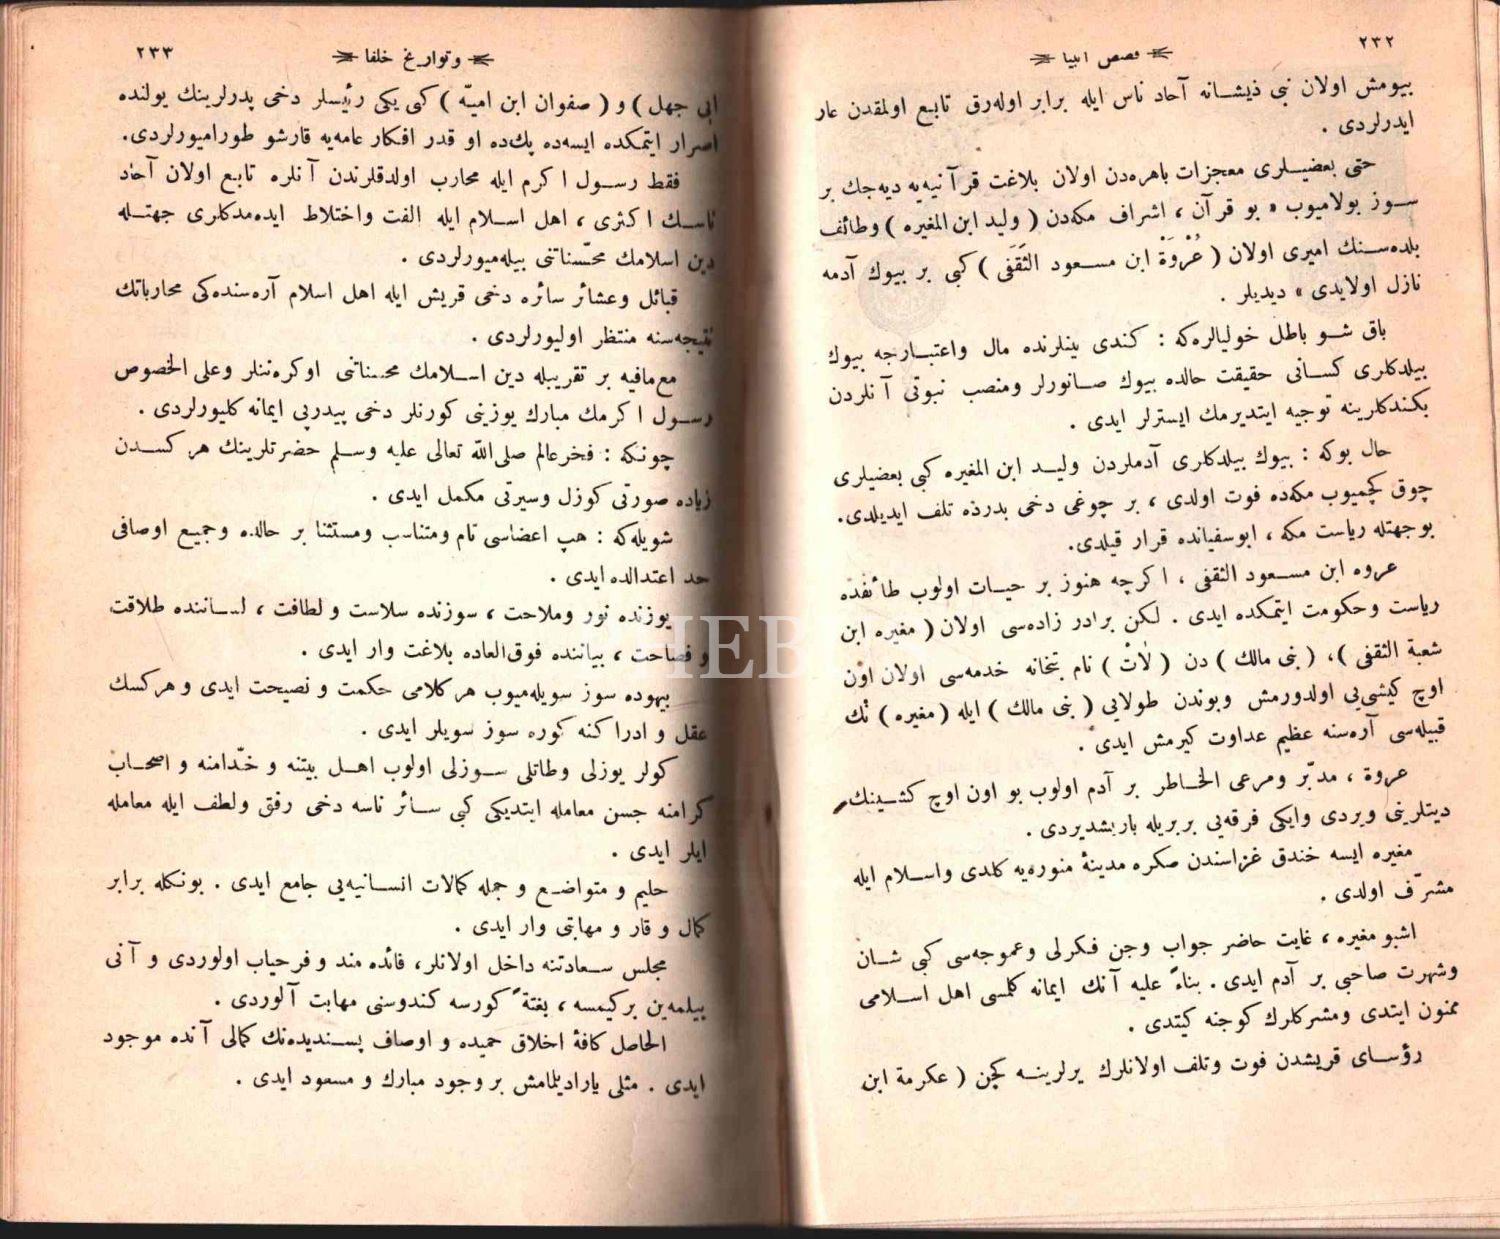 ٢٣٢
قصص انبیا
بیومش اولان نبی ذیشانه آحاد ناس ایله برابر اوله‌رق تابع اولمقدن عار
ایدرلردی .
حتی بعضیلری معجزات باهره‌دن اولان بلاغت قرآنیه‌یه دیه‌جك بر
سوز بولامیوب « بو قرآن ، اشراف مكه‌دن ( ولید ابن المغیره ) وطائف
بلده‌سنك امیری اولان ( عُرْوَةْ ابن مسعود الثَقَفی ) كبی بر بیوك آدمه
نازل اولایدی » دیدیلر .
باق شو باطل خولیالره‌كه : كندی بینلرنده مال واعتبارجه بیوك
بیلدكلری كسانی حقیقت حالده بیوك صانورلر ومنصب نبوتی آنلردن
بكندكلرینه توجیه ایتدیرمك ایسترلر ایدی .
حال بوكه : بیوك بیلدكلری آدملردن ولید ابن المغیره كبی بعضیلری
چوق كچمیوب مكه‌ده فوت اولدی ، بر چوغی دخی بدرده تلف ایدیلدی.
بوجهتله ریاست مكه ، ابوسفیانده قرار قیلدی.
عروه ابن مسعود الثقفی ، اكرچه هنوز بر حیات اولوب طائفده
ریاست وحكومت ایتمكده ایدی . لكن برادر زاده‌سی اولان ( مغیره ابن
شعبة الثقفی ) ، ( بنی مالك ) دن ( لاتْ ) نام بتخانه خدمه‌سی اولان اون
اوچ كیشی‌یی اولدورمش وبوندن طولایی ( بنی مالك ) ایله ( مغیره ) نك
قبیله‌سی آره‌سنه عظیم عداوت كیرمش ایدی .
عروة ، مدبّر ومرعی الخاطر بر آدم اولوب بو اون اوچ كشینك
دیتلرینی ویردی وایكی فرقه‌یی بربریله باریشدیردی .
مغیره ایسه خندق غزاسندن صكره مدینهٔ منوره‌یه كلدی واسلام ایله
مشرّف اولدی .
اشبو مغیره ، غایت حاضر جواب وجن فكرلی وعموجه‌سی كبی شان
وشهرت صاحبی بر آدم ایدی . بناءً علیه آنك ایمانه كلمسی اهل اسلامی
ممنون ایتدی ومشركلرك كوجنه كیتدی .
رؤسای قریشدن فوت وتلف اولانلرك یرلرینه كچن ( عكرمة ابن
٢٣٣
وتواریخ خلفا
ابی جهل ) و ( صفوان ابن امیّه ) كبی یكی رئیسلر دخی پدرلرینك یولنده
اصرار ایتمكده ایسه‌ده پك‌ده او قدر افكار عامه‌یه قارشو طورامیورلردی.
فقط رسول اكرم ایله محارب اولدقلرندن آنلره تابع اولان آحاد
ناسك اكثری ، اهل اسلام ایله الفت واختلاط ایده‌مدكلری جهتله
دین اسلامك محسّناتنی بیله‌میورلردی .
قبائل وعشائر سائره دخی قریش ایله اهل اسلام آره‌سنده‌كی محارباتك
نتیجه‌سنه منتظر اولیورلردی .
مع‌مافیه بر تقریبله دین اسلامك محسناتنی اوكره‌ننلر وعلی الخصوص
رسول اكرمك مبارك یوزینی كورنلر دخی پیدرپی ایمانه كلیورلردی .
چونكه : فخرعالم صلی‌الله تعالی علیه وسلم حضرتلرینك هر كسدن
زیاده صورتی كوزل وسیرتی مكمل ایدی .
شویله‌كه : هپ اعضاسی تام ومتناسب ومستثنا بر حالده وجمیع اوصافی
حد اعتدالده ایدی .
یوزنده نور وملاحت ، سوزنده سلاست و لطافت ، لساننده طلاقت
و فصاحت ، بیاننده فوق‌العاده بلاغت وار ایدی .
بیهوده سوز سویله‌میوب هركلامی حكمت و نصیحت ایدی و هركسك
عقل و ادراكنه كوره سوز سویلر ایدی .
كولر یوزلی وطاتلی سوزلی اولوب اهل بیتنه و خدّامنه و اصحاب
كرامنه حسن معامله ایتدیكی كبی سائر ناسه دخی رفق ولطف ایله معامله
ایلر ایدی .
حلیم و متواضع و جمله كمالات انسانیه‌یی جامع ایدی . بونكله برابر
كمال و قار و مهابتی وار ایدی .
مجلس سعادتنه داخل اولانلر، فائده مند و فرحیاب اولوردی و آنی
بیلمه‌ین بركیمسه ، بغتةً كورسه كندوسنی مهابت آلوردی .
الحاصل كافهٔ اخلاق حمیده و اوصاف پسندیده‌نك كمالی آنده موجود
ایدی . مثلی یارادیلمامش بر وجود مبارك و مسعود ایدی .